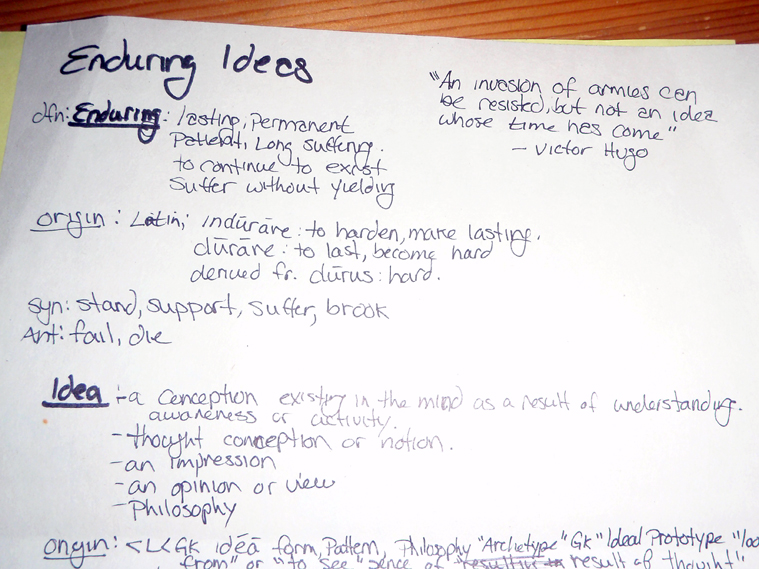 Enduring Ideas
"An invasion of armies can
be resisted, but not an idea
whose time has come"
- Victor Hugo
dfn: Enduring: lasting, Permanent
Patient, Long suffering.
to continue to exist
Suffer without yielding
origin: Latin; indūrāre: to harden, make lasting.
dūrāre: to last, become hard
derived fr. dūrus: hard.
syn: stand, support, suffer, brook
Ant: fail, die
Idea :-a conception existing in the mind as a result of understanding.
awareness or activity.
-thought conception or notion.
-an impression
-an opinion or view
-Philosophy
origin: <L<GK idéā form, Pattern, Philosophy "Archetype" GK "Ideal Prototype "loo
from" or "to see" sence of result of thought"